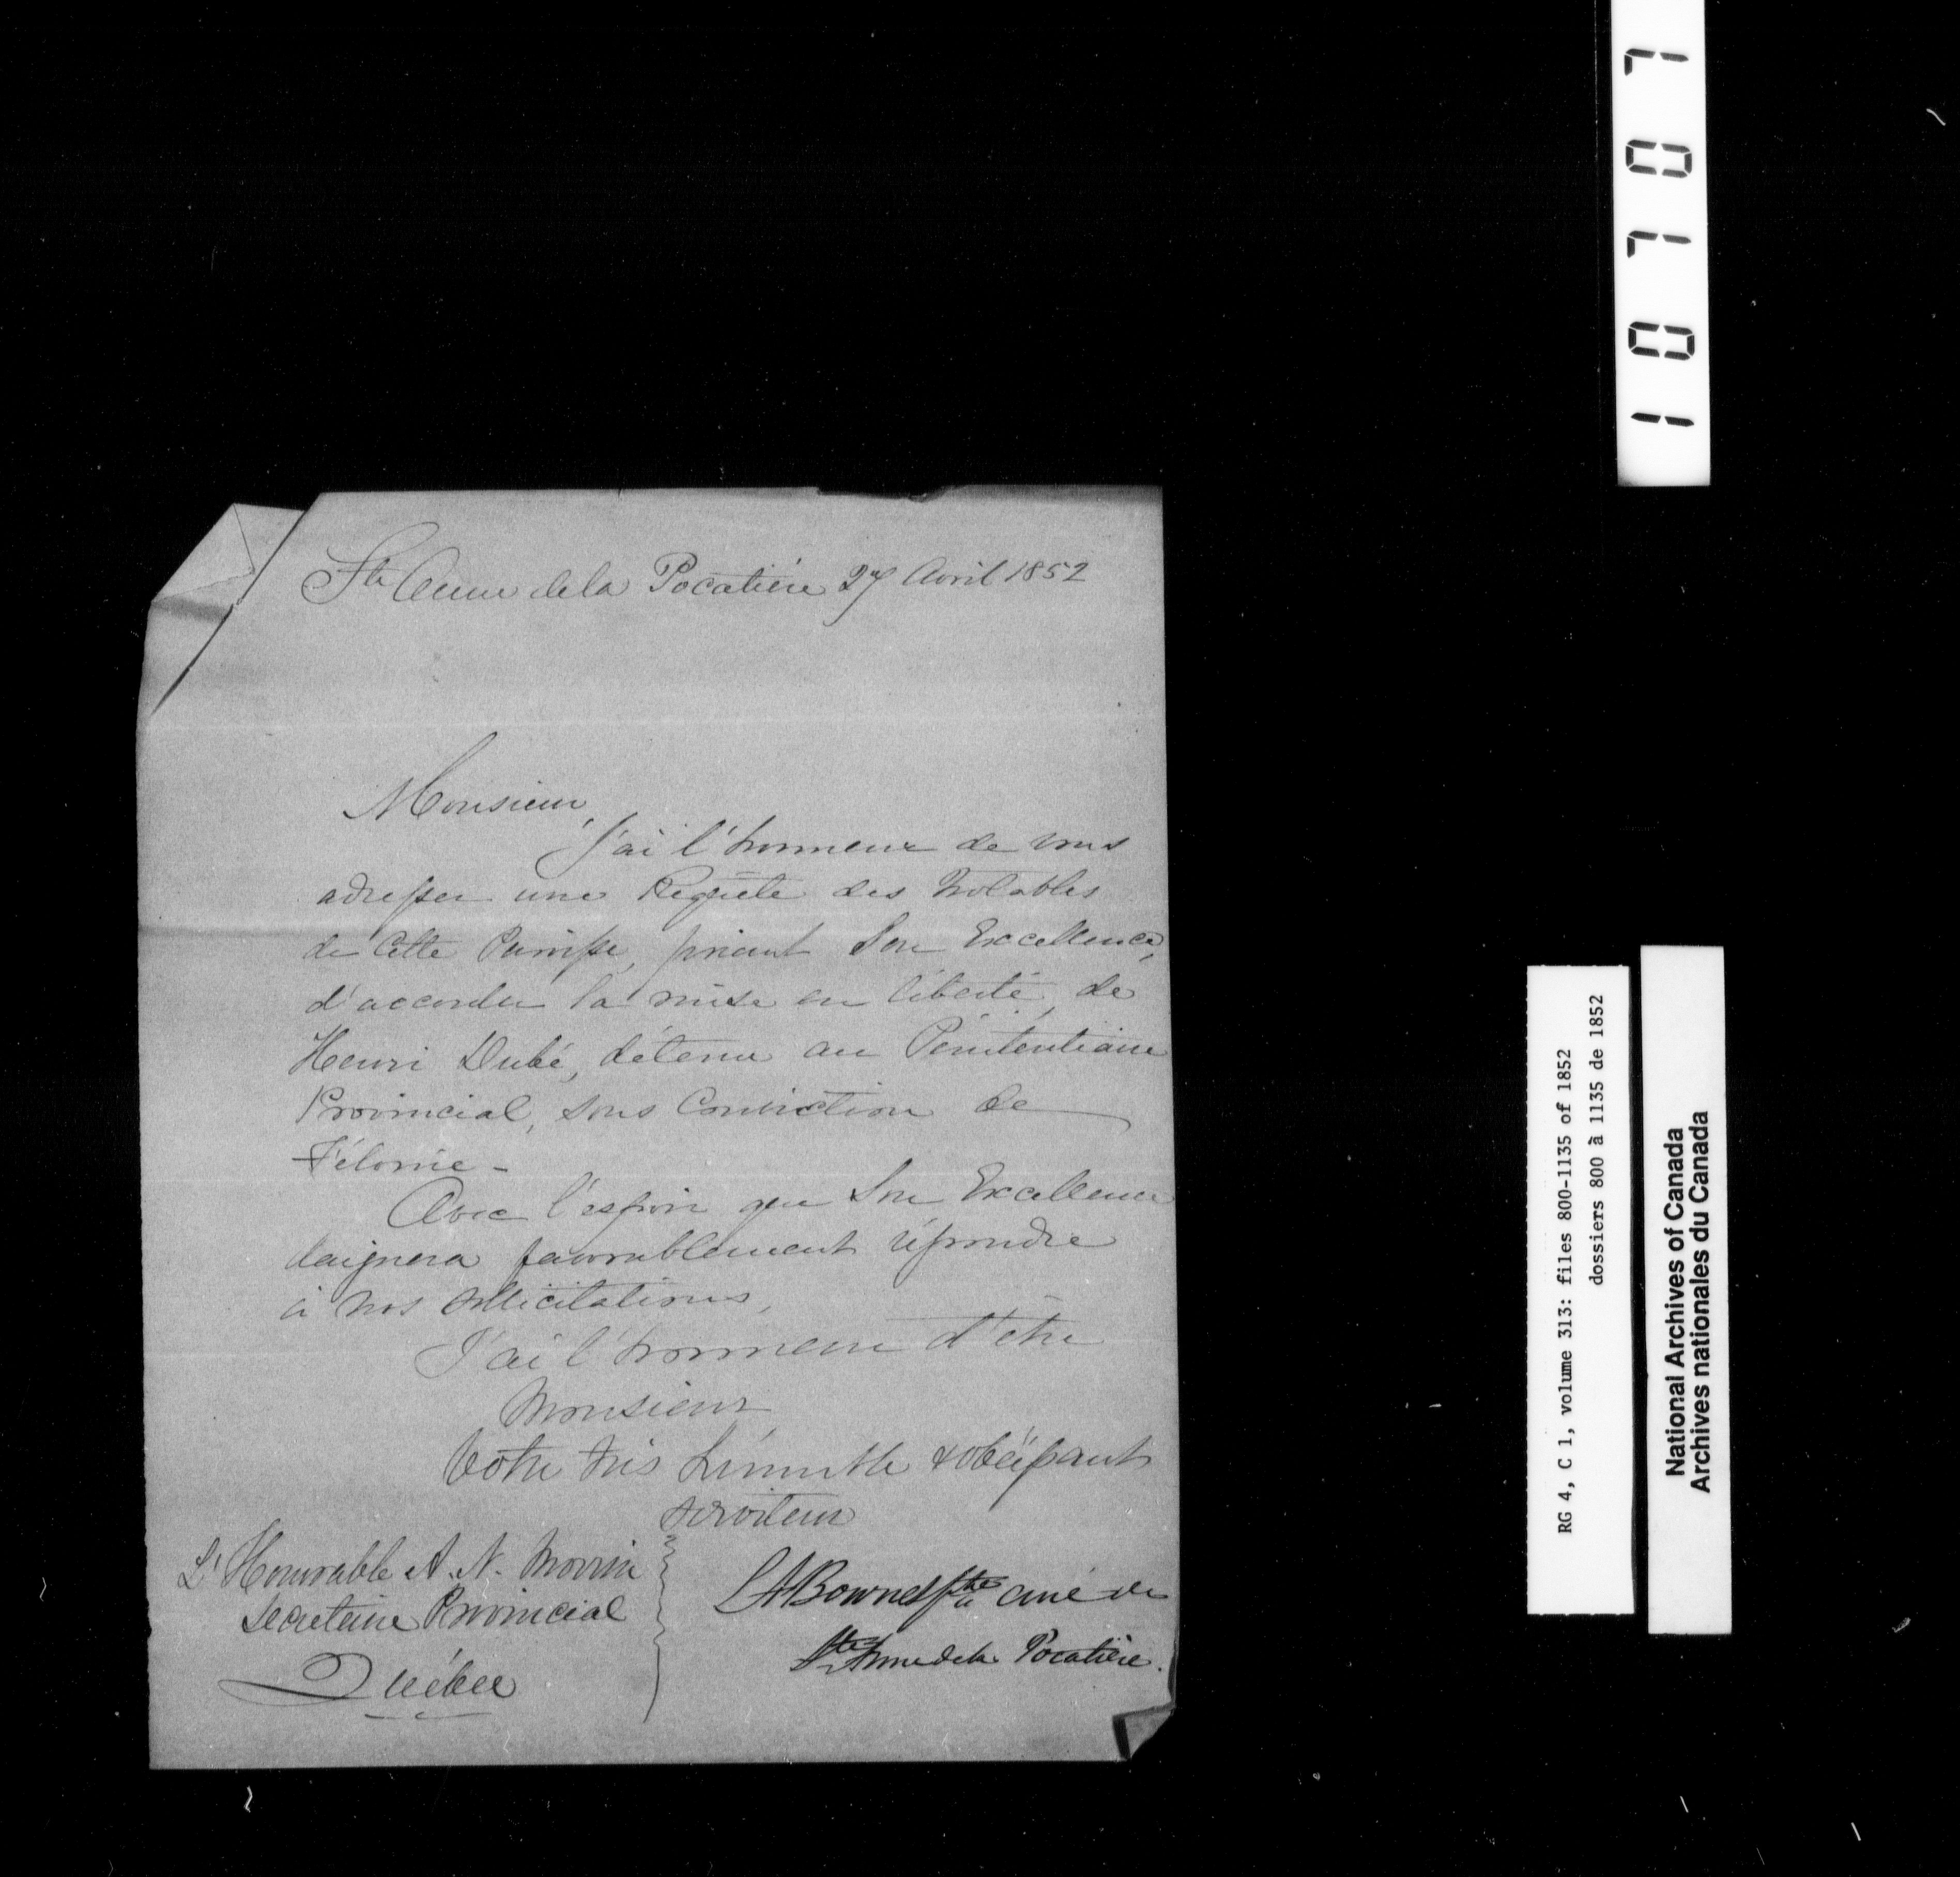 Ste Anne de la Pocatière 27 Avril 1852
Monsieur,
J'ai l'honneur de vous
adresser une Requête des Notables
de Cette Paroisse, priant Son Excellence,
d'accorder la mise en liberté, de
Henri Dubé, détenu au Pénitentiaire
Provincial, sous Conviction de
Félonie -
Avec l'espoir que Son Excellence
daignera favorablement répondre
à nos sollicitations,
J'ai l'honneur d'être
Monsieur
Votre très humble & obéissant
serviteur
L'Honorable A. N. Morin
Secretaire Provincial
Québec
Ptre curé de
Ste Anne de la Pocatière.
10707
RG 4, C 1, volume 313: files 800-1135 of 1852
dossiers 800 à 1135 de 1852
National Archives of Canada
Archives nationales du Canada